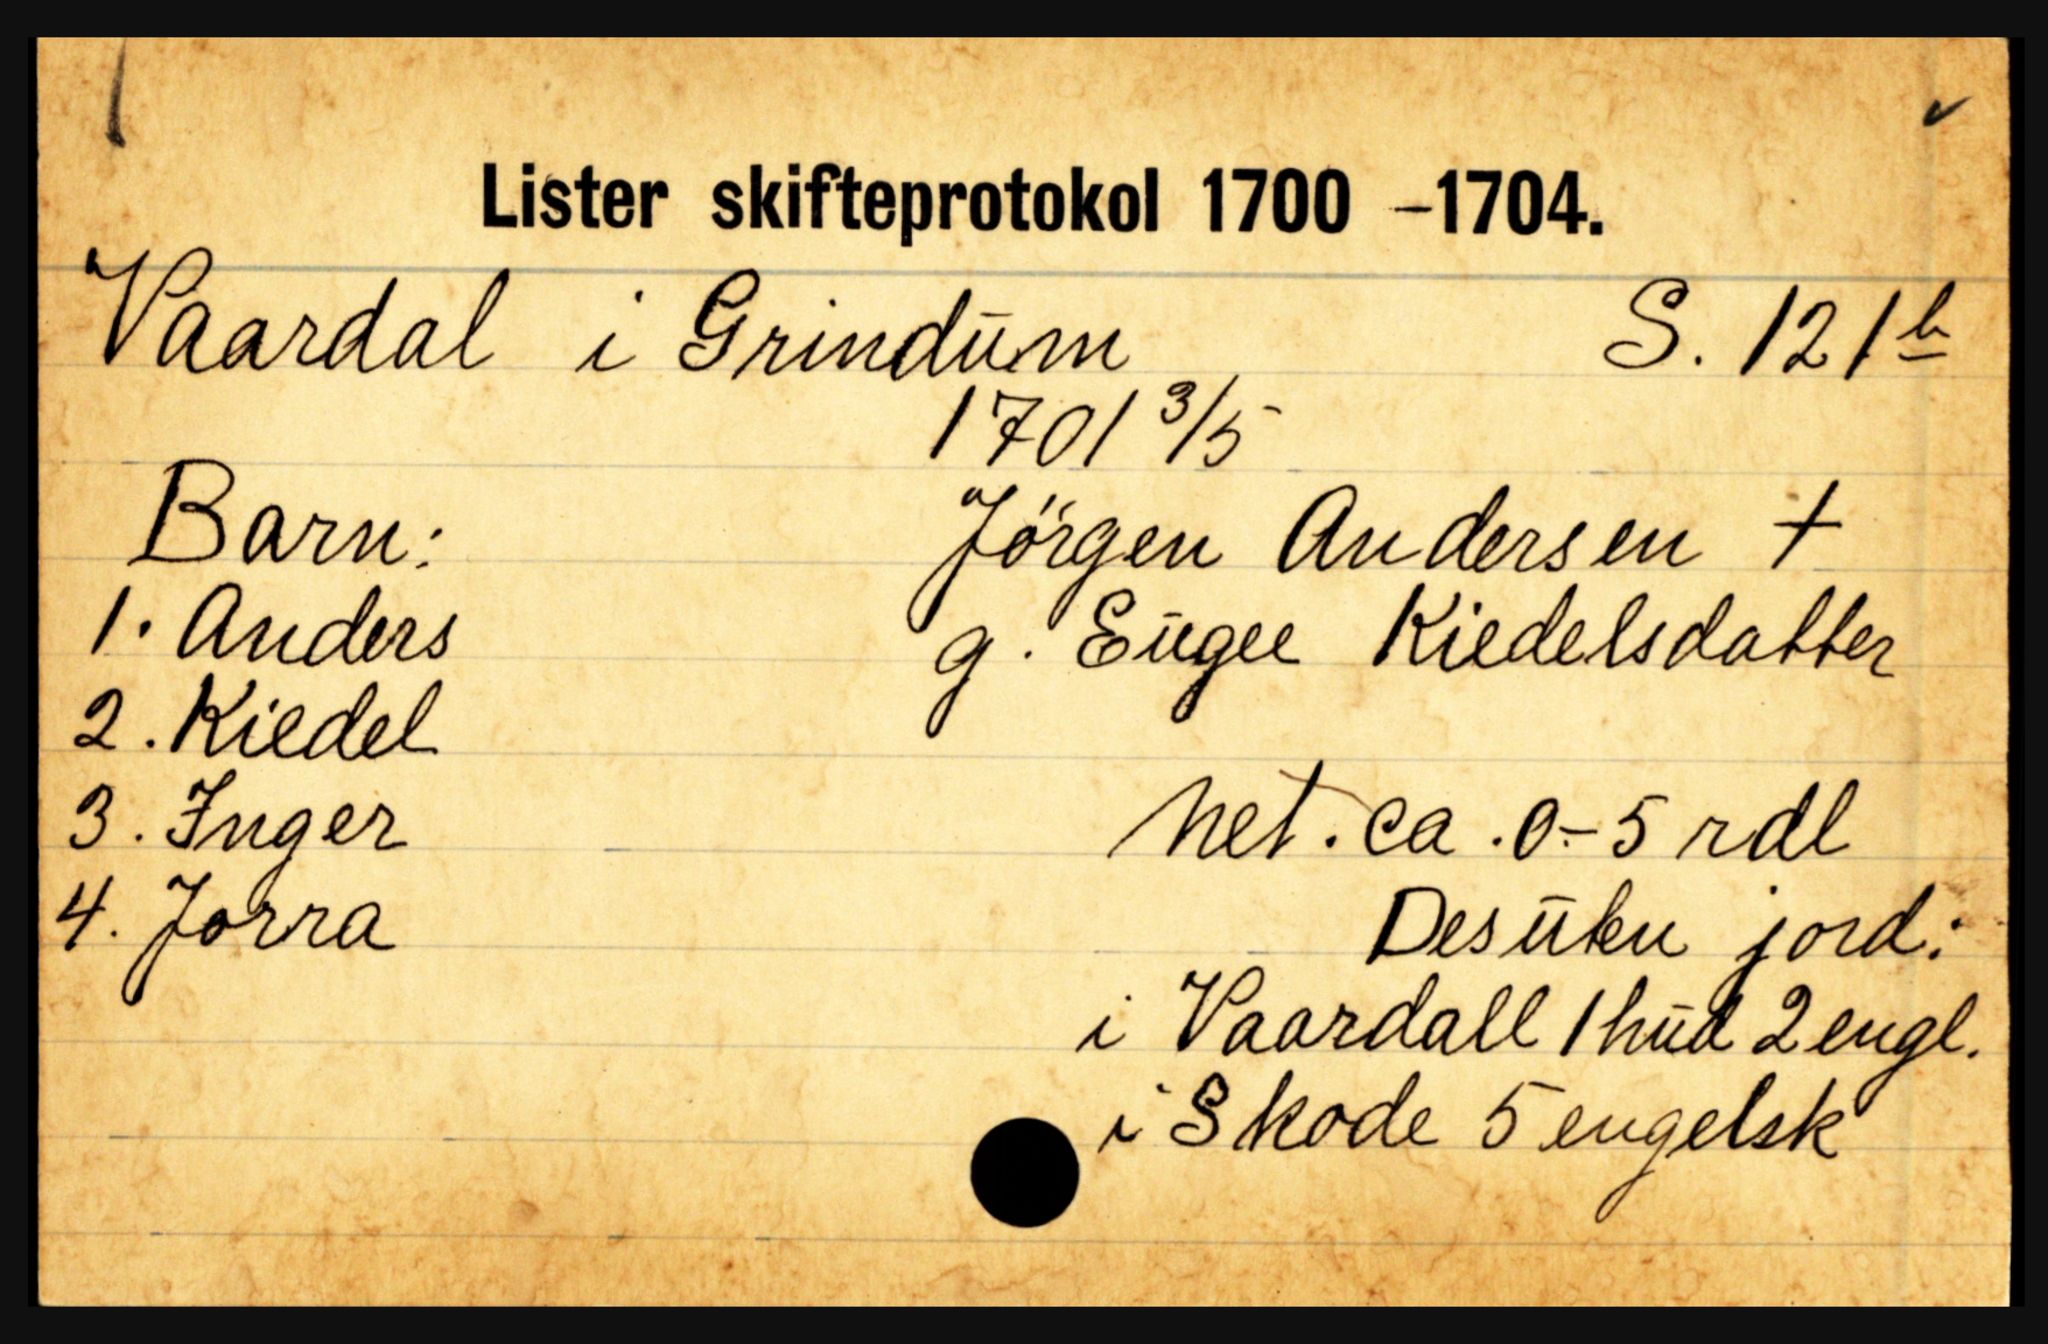 Lister skifteprotokol 1700 –1704.
Vaardal i Grindum S. 121 b
1701 3/5
Barn: Jörgen Andersen †
1. Anders g. Eugee Kiedelsdatter
2. Kiedel
3. Inger net. ca. 0-5 rdl
4. Jorra Desuten jord:
i Vaardall 1 hud 2 engl.
i Skode 5 engelsk